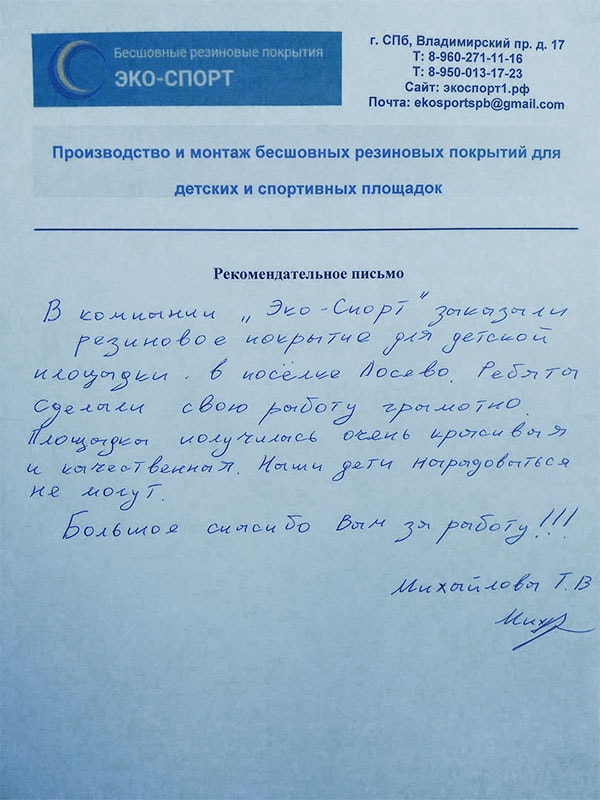 Бесшовные резиновые покрытия
ЭКО-СПОРТ
г. СПб, Владимирский пр. д. 17
Т: 8-960-271-11-16
Т: 8-950-013-17-23
Сайт: экоспорт1.рф
Почта: ekosportspb@gmail.com
Производство и монтаж бесшовных резиновых покрытий для
детских и спортивных площадок
Рекомендательное письмо
В компании „Эко-Спорт" заказали
резиновое покрытие для детской
площадки в посёлке Лосево. Ребята
сделали свою работу грамотно.
Площадка получилась очень красивая
и качественная. Наши дети нарадоваться
не могут.
Большое спасибо Вам за работу!!!
Михайлова Т.В